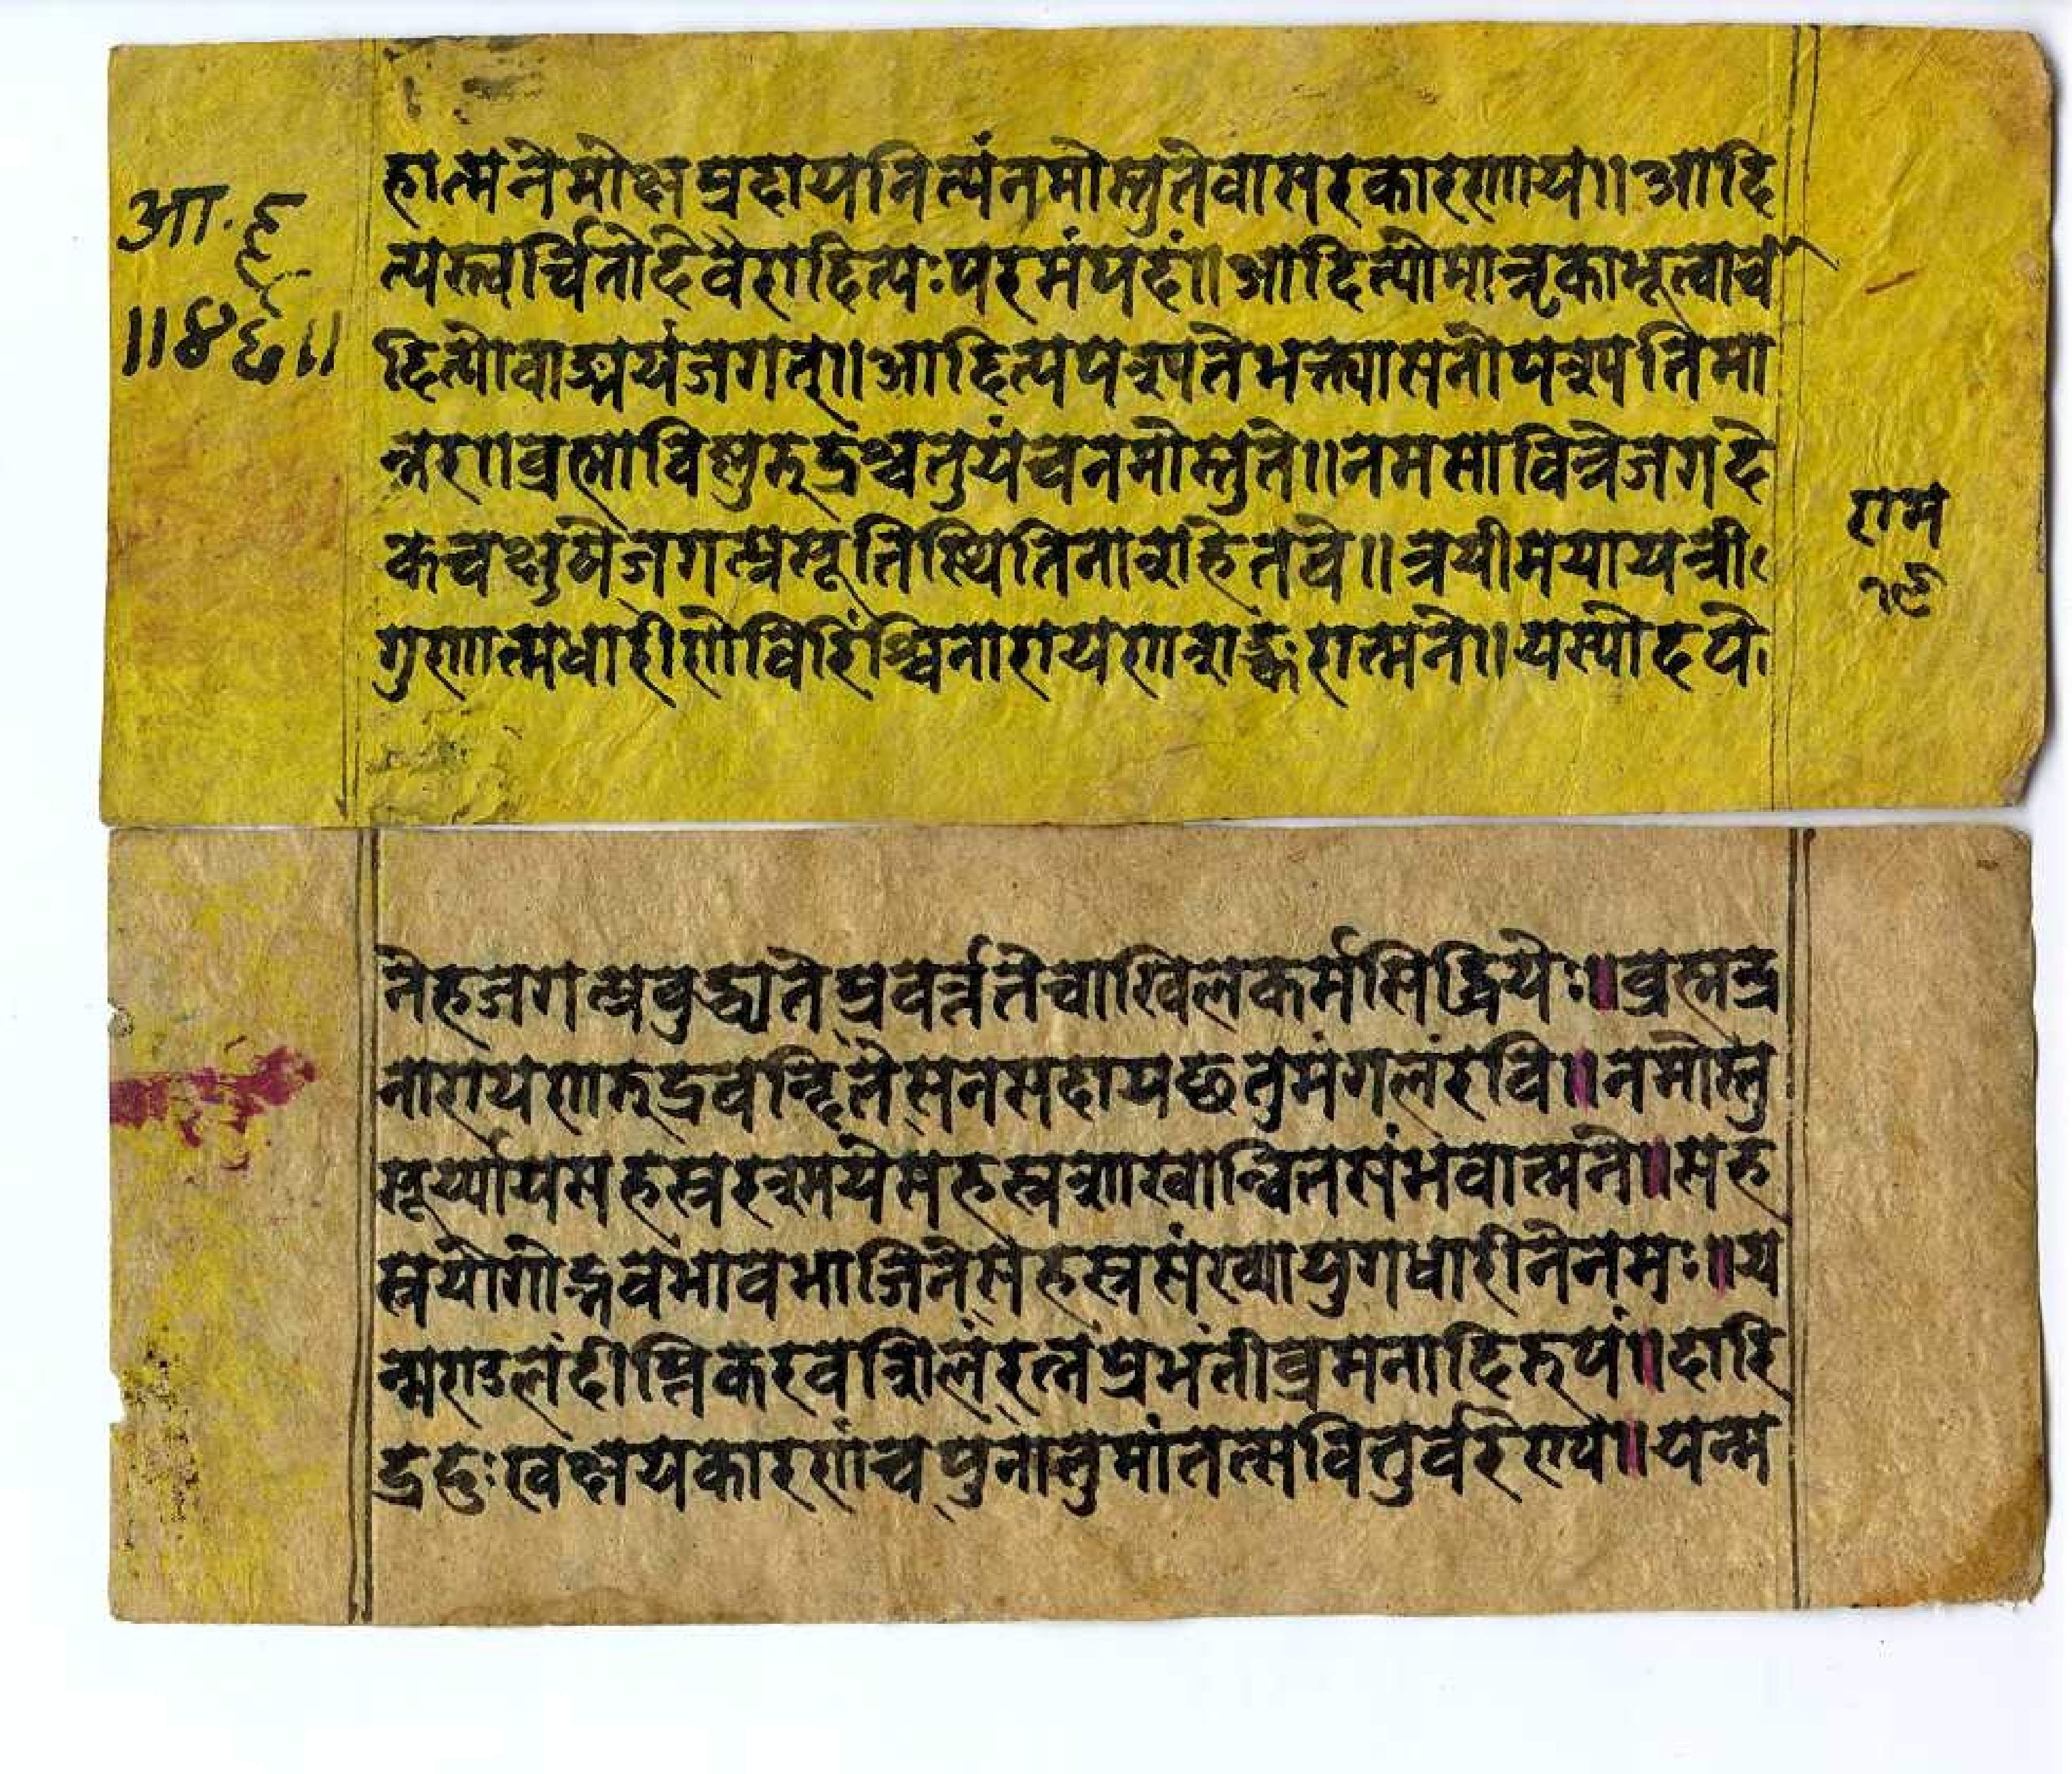 आ.हृ
॥४६॥
हात्मनेमोक्षप्रदायनित्यंनमोस्तुतेवासरकारणाय॥आदि
त्यस्त्वर्चितोदेवैरादित्यःपरमंपदं॥आदित्योमातृकाभूत्वाचे
दित्योवाङ्मयंजगत्॥आदित्यपश्यतेभक्त्यासतोपश्यतिमा
न्नरा॥ब्रह्माविष्णुरुद्रश्चतुयंचनमोस्तुते॥नमसावित्रेजगदे
कचक्षुषेजगत्प्रसूतिस्थितिनाशहेतवे॥त्रयीमयायत्री
गुणात्मधारीणेविरिंश्चिनारायणशङ्करात्मने॥यस्योदये
राम
१९
नेहजगत्प्रबुद्ध्यतेप्रवर्त्ततेचाखिलकर्मसिद्धियेः॥ब्रह्मद्र
नारायणरुद्रवन्दितेसनसदायछतुमंगलंरवि॥नमोस्तु
सूर्य्यायसहस्ररश्मयेसहस्रशाखान्वितसंभवात्मने॥सह
स्रयोगोद्भवभावभाजिनेसहस्रसंख्यायुगधारीनेनमः॥य
न्मण्डलंदीप्तिकरवशिलंरत्नंप्रभंतीब्रमनादिरुपं॥दारि
द्रदुःखक्षयकारणंचपुनातुमांतत्सवितुर्वरेण्य॥यन्म